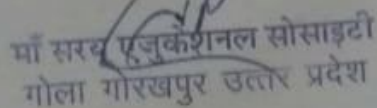 माँ सरयू एजुकेशनल सोसाइटी
गोला गोरखपुर उत्तर प्रदेश